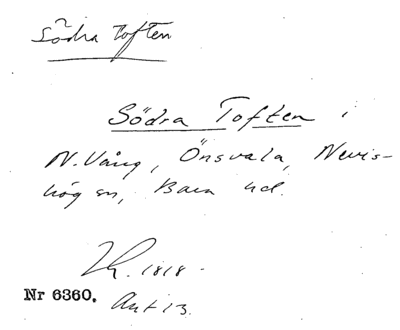 Södra Toften
Södra Toften i
N. Vång, Önsvala, Nevis-
hög sn, Bara hd.
1818.
Nr 6360.
Akt 13.